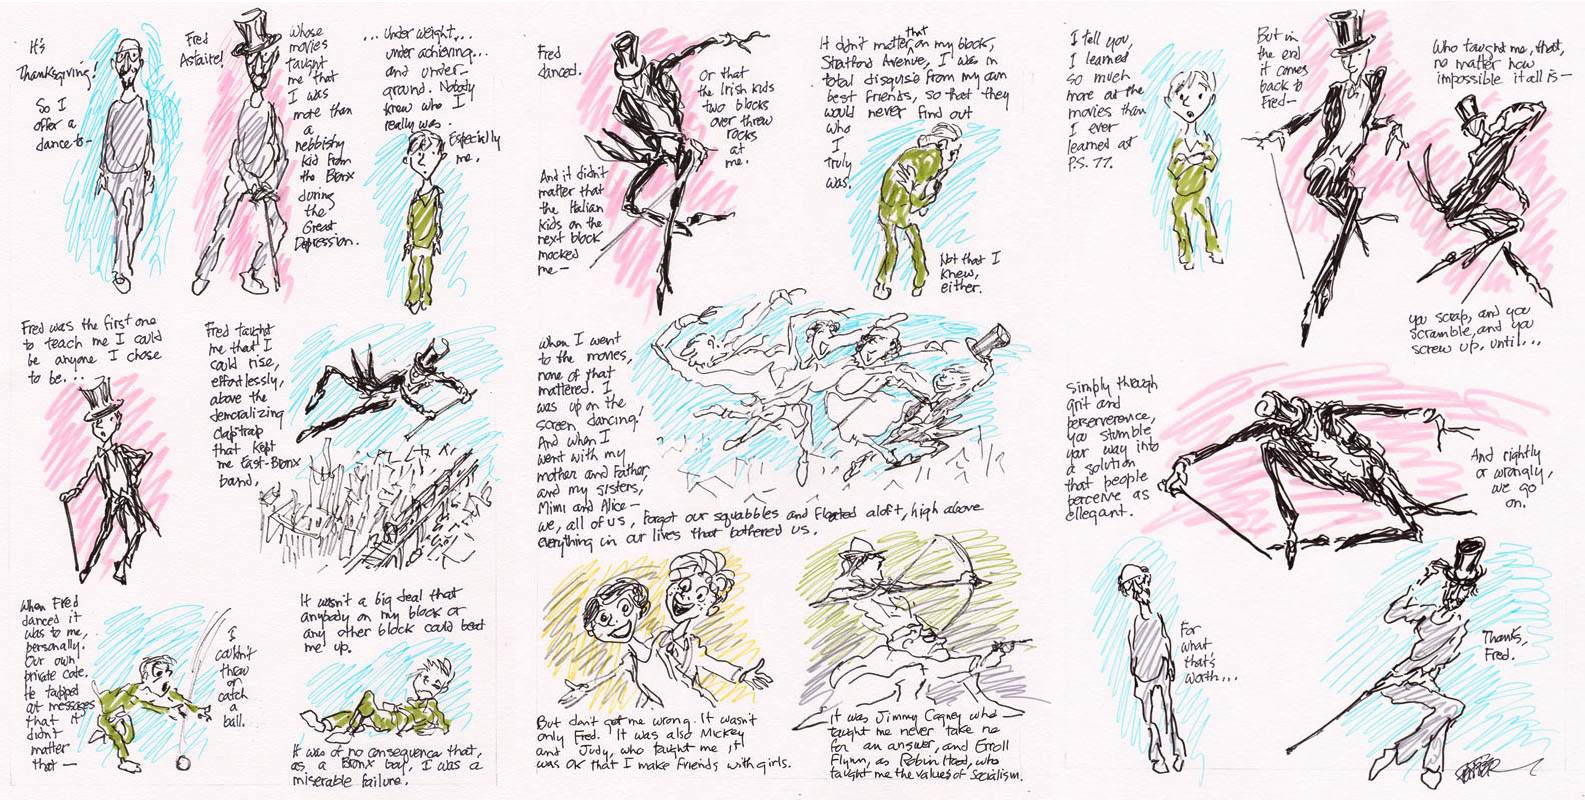 It's
Thanksgiving!
So I
offer a
dance to—
Fred
Astaire!
Whose
movies
taught
me that
I was
more than
a
nebbishy
kid from
the Bronx
during
the
Great
Depression.
... Under weight...
under achieving...
and under-
ground. Nobody
knew who I
really was.
Especially
me.
Fred was the first one
to teach me I could
be anyone I chose
to be...
Fred taught
me that I
could rise,
effortlessly,
above the
demoralizing
claptrap
that kept
me East-Bronx
bound.
When Fred
danced it
was to me,
personally.
Our own
private code.
He tapped
out messages
that it
didn't
matter
that—
I
couldn't
throw
or
catch
a
ball.
It wasn't a big deal that
anybody on my block or
any other block could beat
me up.
It was of no consequence that,
as a Bronx boy, I was a
miserable failure.
Fred
danced.
Or that
the Irish kids
two blocks
over threw
rocks
at
me.
And it didn't
matter that
the Italian
kids on the
next block
mocked
me—
It didn't matter that on my block,
Stratford Avenue, I was in
total disguise from my own
best friends, so that they
would never find out
who
I
truly
was.
Not that I
knew,
either.
When I went
to the movies,
none of that
mattered. I
was up on the
screen dancing!
And when I
went with my
mother and father,
and my sisters,
Mimi and Alice—
we, all of us, forgot our squabbles and floated aloft, high above
everything in our lives that bothered us.
But don't get me wrong. It wasn't
only Fred. It was also Mickey
and Judy, who taught me it
was OK that I make friends with girls.
It was Jimmy Cagney who
taught me never take no
for an answer, and Erroll
Flynn, as Robin Hood, who
taught me the values of Socialism.
I tell you,
I learned
so much
more at the
movies than
I ever
learned at
P.S. 77.
But in
the end
it comes
back to
Fred—
Who taught me, that,
no matter how
impossible it all is—
you scrap, and you
scramble, and you
screw up, until...
Simply through
grit and
perserverence,
you stumble
your way into
a solution
that people
perceive as
ellegant.
And rightly
or wrongly,
we go
on.
For
what
that's
worth...
Thanks,
Fred.